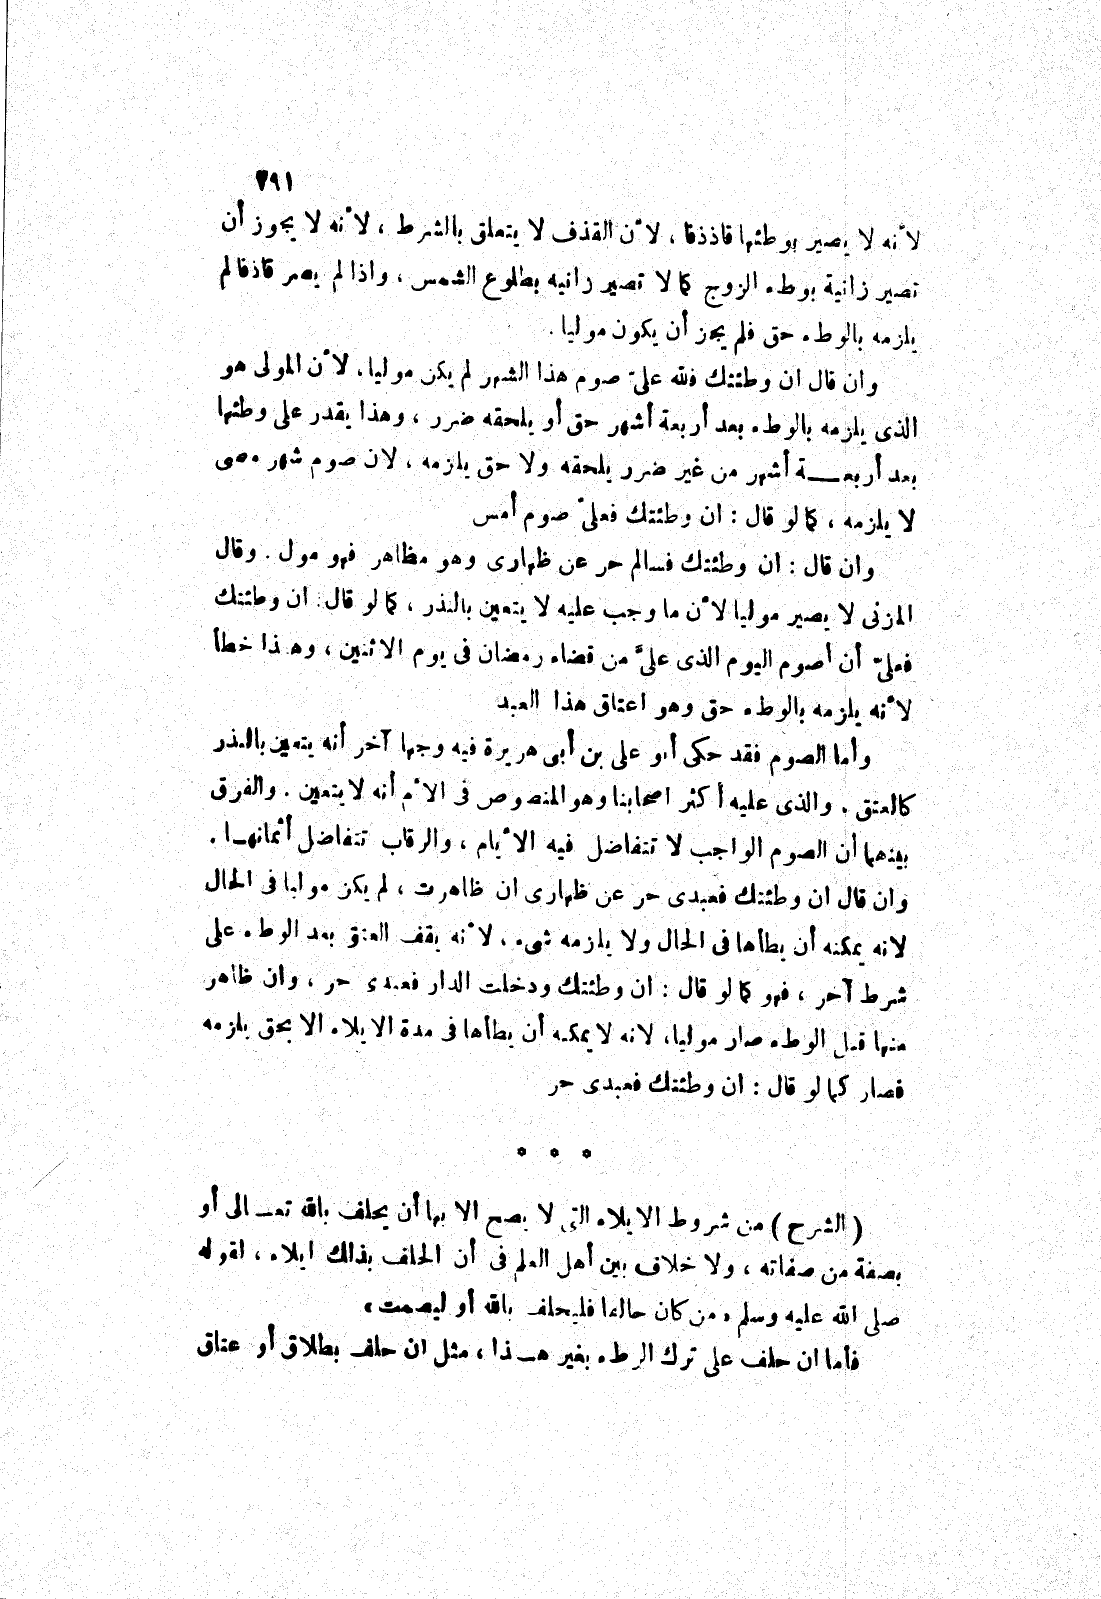 ٢٩١
لأنه لا يصير بوطئها قاذفا ، لأن القذف لا يتعلق بالشرط ، لأنه لا يجوز أن
تصير زانية بوطء الزوج كما لا تصير زانيه بطلوع الشمس ، واذا لم يصر قاذفا لم
يلزمه بالوطء حق فلم يجز أن يكون موليا .
وان قال ان وطئتك فلله علىّ صوم هذا الشهر لم يكن موليا ، لأن المولى هو
الذى يلزمه بالوطء بعد أربعة أشهر حق أو يلحقه ضرر ، وهذا يقدر على وطئها
بعد أربعـــة أشهر من غير ضرر يلحقه ولا حق يلزمه ، لان صوم شهر مضى
لا يلزمه ، كما لو قال : ان وطئتك فعلىّ صوم أمس
وان قال : ان وطئتك فسالم حر عن ظهارى وهو مظاهر فهو مول . وقال
المزنى لا يصير موليا لأن ما وجب عليه لا يتعين بالنذر ، كما لو قال : ان وطئتك
فعلىّ أن أصوم اليوم الذى علىّ من قضاء رمضان فى يوم الاثنين ، وهـذا خطأ
لأنه يلزمه بالوطء حق وهو اعتاق هذا العبد
وأما الصوم فقد حكى أبو على بن أبى هريرة فيه وجها آخر أنه يتعين بالنذر
كالعتق . والذى عليه أكثر اصحابنا وهو المنصوص فى الأم أنه لا يتعين . والفرق
بينهما أن الصوم الواجب لا تتفاضل فيه الأيام ، والرقاب تتفاضل أثمانهـا .
وان قال ان وطئتك فعبدى حر عن ظهارى ان ظاهرت ، لم يكن موليا فى الحال
لانه يمكنه أن يطأها فى الحال ولا يلزمه شىء ، لأنه يقف العتق بعد الوطء على
شرط آخر ، فهو كما لو قال : ان وطئتك ودخلت الدار فعبدى حر ، وان ظاهر
منها قبل الوطء صار موليا ، لانه لا يمكنه أن يطأها فى مدة الايلاء الا بحق يلزمه
فصار كما لو قال : ان وطئتك فعبدى حر
* * *
( الشرح ) من شروط الايلاء التى لا يصح الا بها أن يحلف بالله تعـالى أو
بصفة من صفاته ، ولا خلاف بين أهل العلم فى أن الحلف بذلك ايلاء ، لقوله
صلى الله عليه وسلم « من كان حالفا فليحلف بالله أو ليصمت »
فأما ان حلف على ترك الوطء بغير هـذا ، مثل ان حلف بطلاق أو عتاق